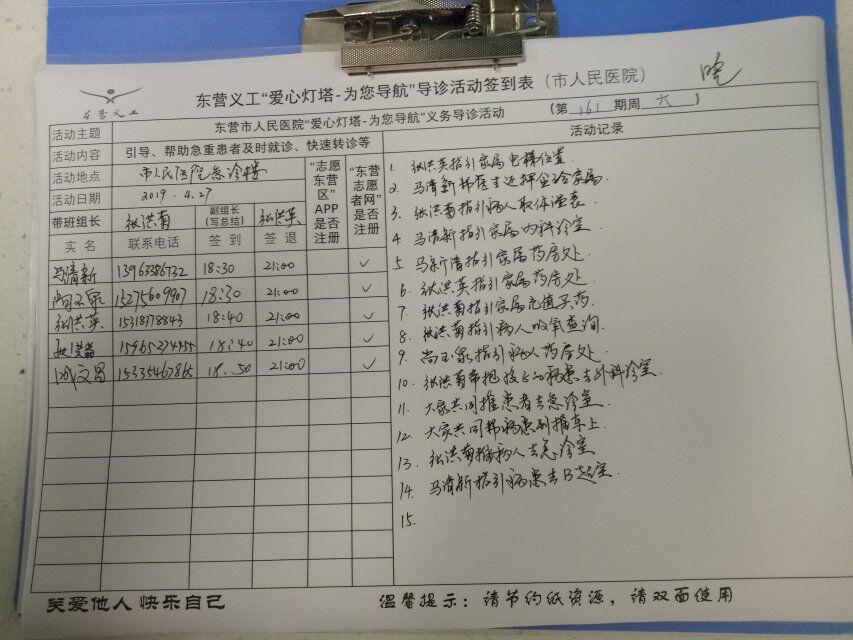 东营义工
东营义工“爱心灯塔-为您导航”导诊活动签到表（市人民医院）
晚
活动主题 东营市人民医院“爱心灯塔-为您导航”义务导诊活动 （第 161 期周 六 ）
活动内容 引导、帮助急重患者及时就诊、快速转诊等
活动地点 市人民医院急诊楼
活动日期 2019.4.27
带班组长 张洪菊 副组长（写总结） 张洪英
“志愿东营区”APP是否注册
“东营志愿者网”是否注册
实名 联系电话 签到 签退
马清新 13963386732 18:30 21:00 ✓
尚玉泉 15275609907 18:30 21:00 ✓
张洪英 15318378843 18:40 21:00 ✓
张洪菊 15965274455 18:40 21:00 ✓
文昌 18:50 21:00 ✓
活动记录
1. 张洪英指引家属电梯位置
2. 马清新帮医生送押金给家属
3. 张洪菊指引病人取体温表
4. 马清新指引家属内科诊室
5. 马新清指引家属药房处
6. 张洪英指引家属药房处
7. 张洪菊指引家属充值买药
8. 张洪菊指引病人吸氧查询
9. 尚玉泉指引病人药房处
10. 张洪菊带病患去外科诊室
11. 大家共同推患者去急诊室
12. 大家共同帮病患到推车上
13. 张洪菊推病人去急诊室
14. 马清新指引病患去B超室
15.
关爱他人 快乐自己
温馨提示：请节约纸资源，请双面使用